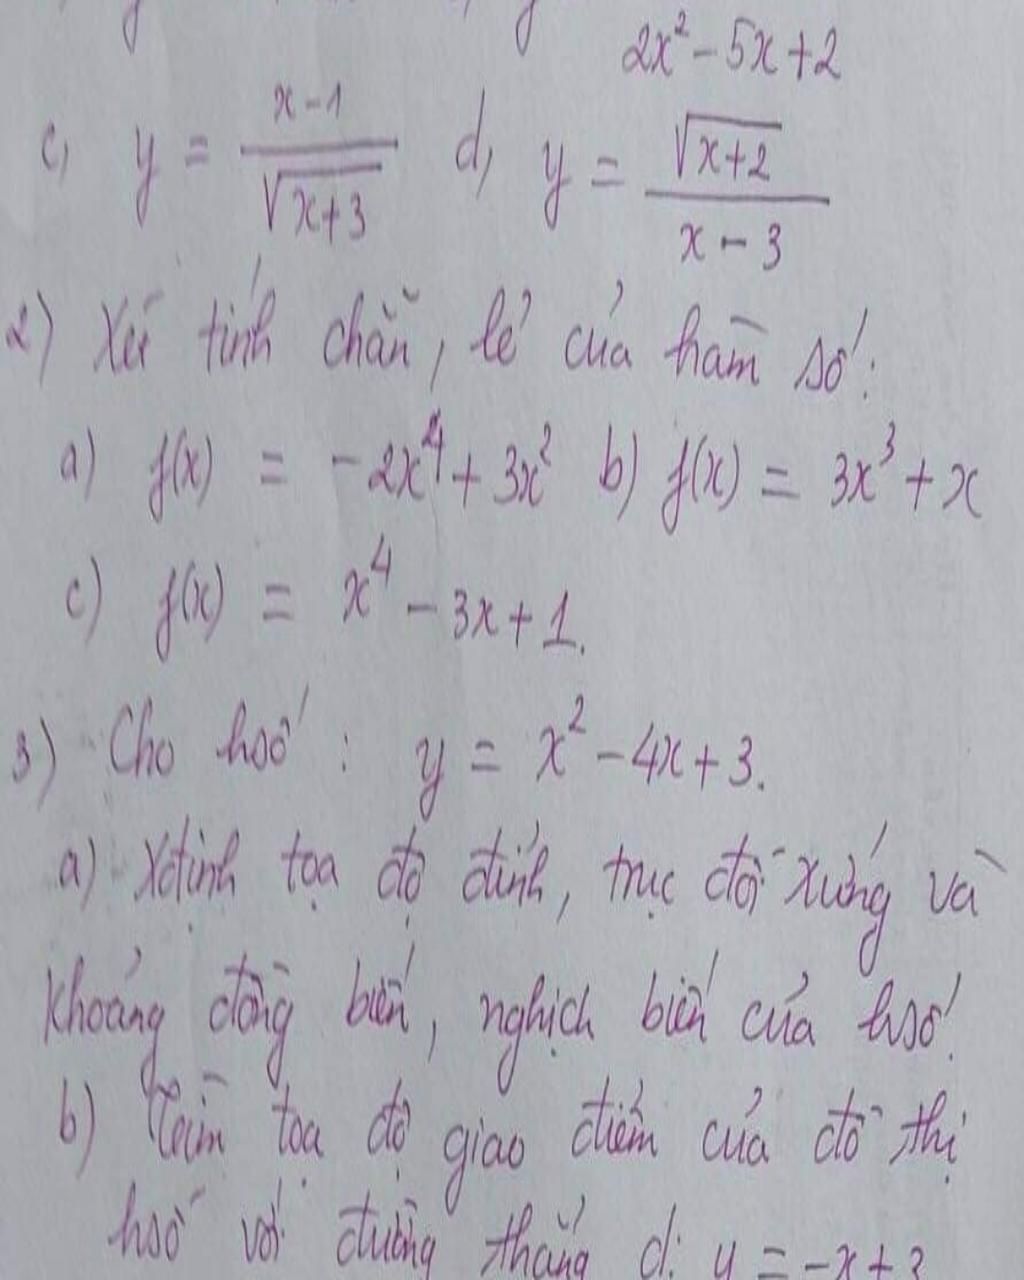 2x² - 5x + 2
c, y = (x - 1)/√(x+3) d, y = √(x+2)/(x - 3)
2) Xét tính chẵn, lẻ của hàm số:
a) f(x) = -2x⁴ + 3x² b) f(x) = 3x³ + x
c) f(x) = x⁴ - 3x + 1.
3) Cho hsố : y = x² - 4x + 3.
a) Xđịnh tọa độ đỉnh, trục đối xứng và
khoảng đồng biến, nghịch biến của hsố!
b) Tìm tọa độ giao điểm của đồ thị
hsố với đường thẳng d: y = -x + 3